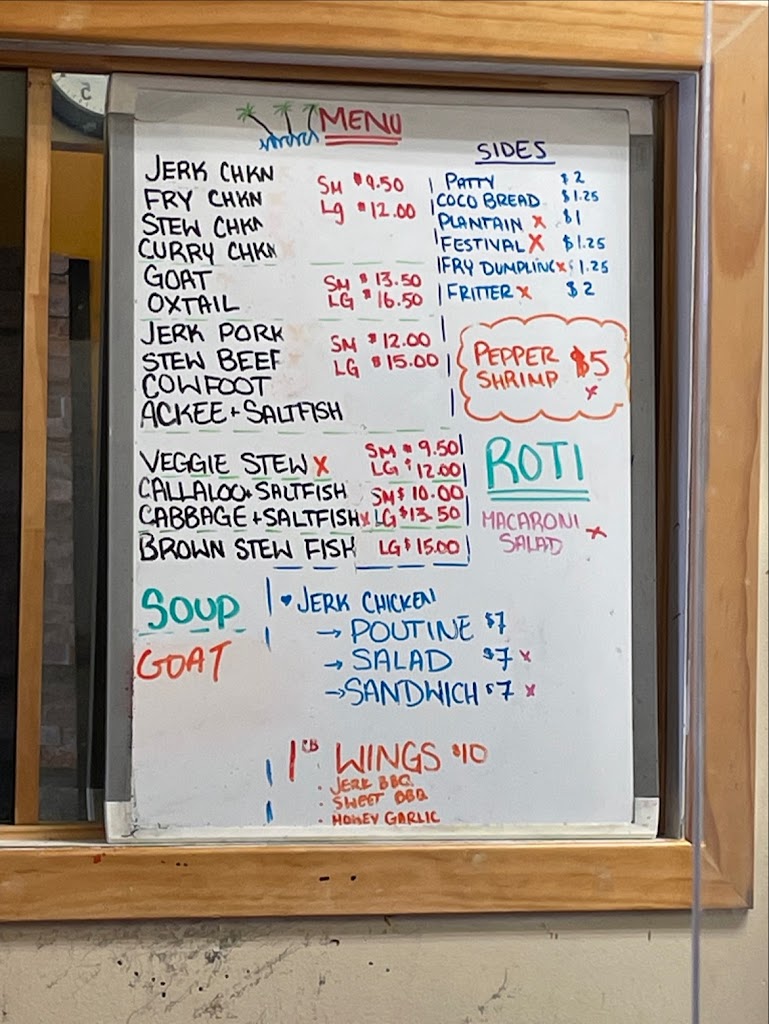 MENU
JERK CHKN
FRY CHKN
STEW CHKN
CURRY CHKN
SM $9.50
Lg $12.00
GOAT
OXTAIL
SM $13.50
LG $16.50
JERK PORK
STEW BEEF
COWFOOT
ACKEE + SALTFISH
SM $12.00
LG $15.00
VEGGIE STEW x
SM $9.50
LG $12.00
CALLALOO + SALTFISH
CABBAGE + SALTFISH x
SM $10.00
LG $13.50
BROWN STEW FISH LG $15.00
SIDES
PATTY $2
COCO BREAD $1.25
PLANTAIN x $1
FESTIVAL X $1.25
FRY DUMPLING x $1.25
FRITTER x $2
PEPPER SHRIMP $5
x
ROTI
MACARONI
SALAD x
SOUP
GOAT
♥ JERK CHICKEN
→ POUTINE $7
→ SALAD $7 x
→ SANDWICH $7 x
1 LB WINGS $10
· JERK BBQ
· SWEET BBQ
· HONEY GARLIC
5